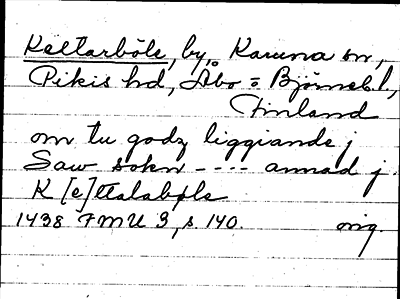 Kettarböle, by, Karuna sn,
Pikis hd, Åbo = Björneb. l.,
Finland
om tu godz liggiande j
Saw sokn ---- annad j
K[e]ttalabøle
1438 FMU 3, s. 140. orig.